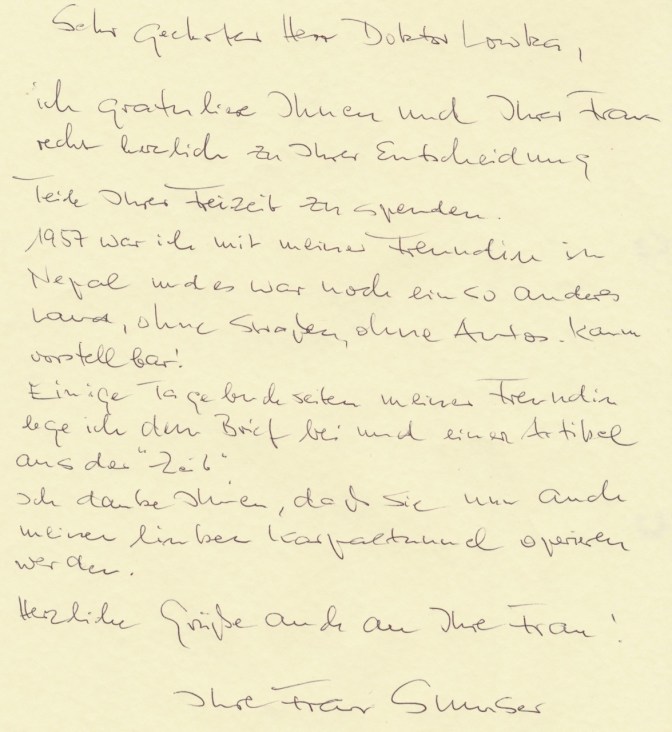 Sehr Geehrter Herr Doktor Lowka,
ich gratuliere Ihnen und Ihrer Frau
recht herzlich zu Ihrer Entscheidung
Teile Ihrer Freizeit zu spenden.
1957 war ich mit meiner Freundin in
Nepal und es war noch ein so anderes
Land, ohne Straßen, ohne Autos. Kaum
vorstellbar!
Einige Tagebuchseiten meiner Freundin
lege ich dem Brief bei und einen Artikel
aus der "Zeit"
Ich danke Ihnen, daß Sie nun auch
meinen linken Karpaltunnel operieren
werden.
Herzliche Grüße auch an Ihre Frau!
Ihre Frau